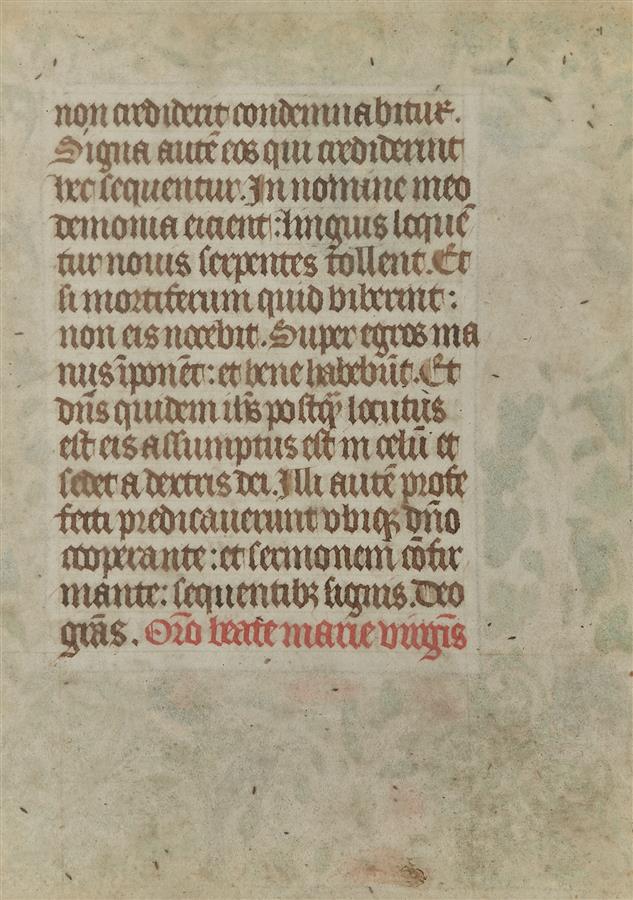 non crediderit condemnabitur.
Signa autē eos qui crediderint
hec sequentur. In nomine meo
demonia eicient : linguis loquē
tur nouis serpentes tollent. Et
si mortiferum quid biberint :
non eis nocebit. Super egros ma
nus īponēt : et bene habebūt. Et
dn̄s quidem ih̄s postq̄ locutus
est eis assumptus est in celū et
sedet a dextris dei. Illi autē profe
fecti predicauerunt vbiqꝫ dn̄o
cooperante : et sermonem cōfir
mante : sequentibꝫ signis. Deo
grās. Or̄o beate marie virgīs